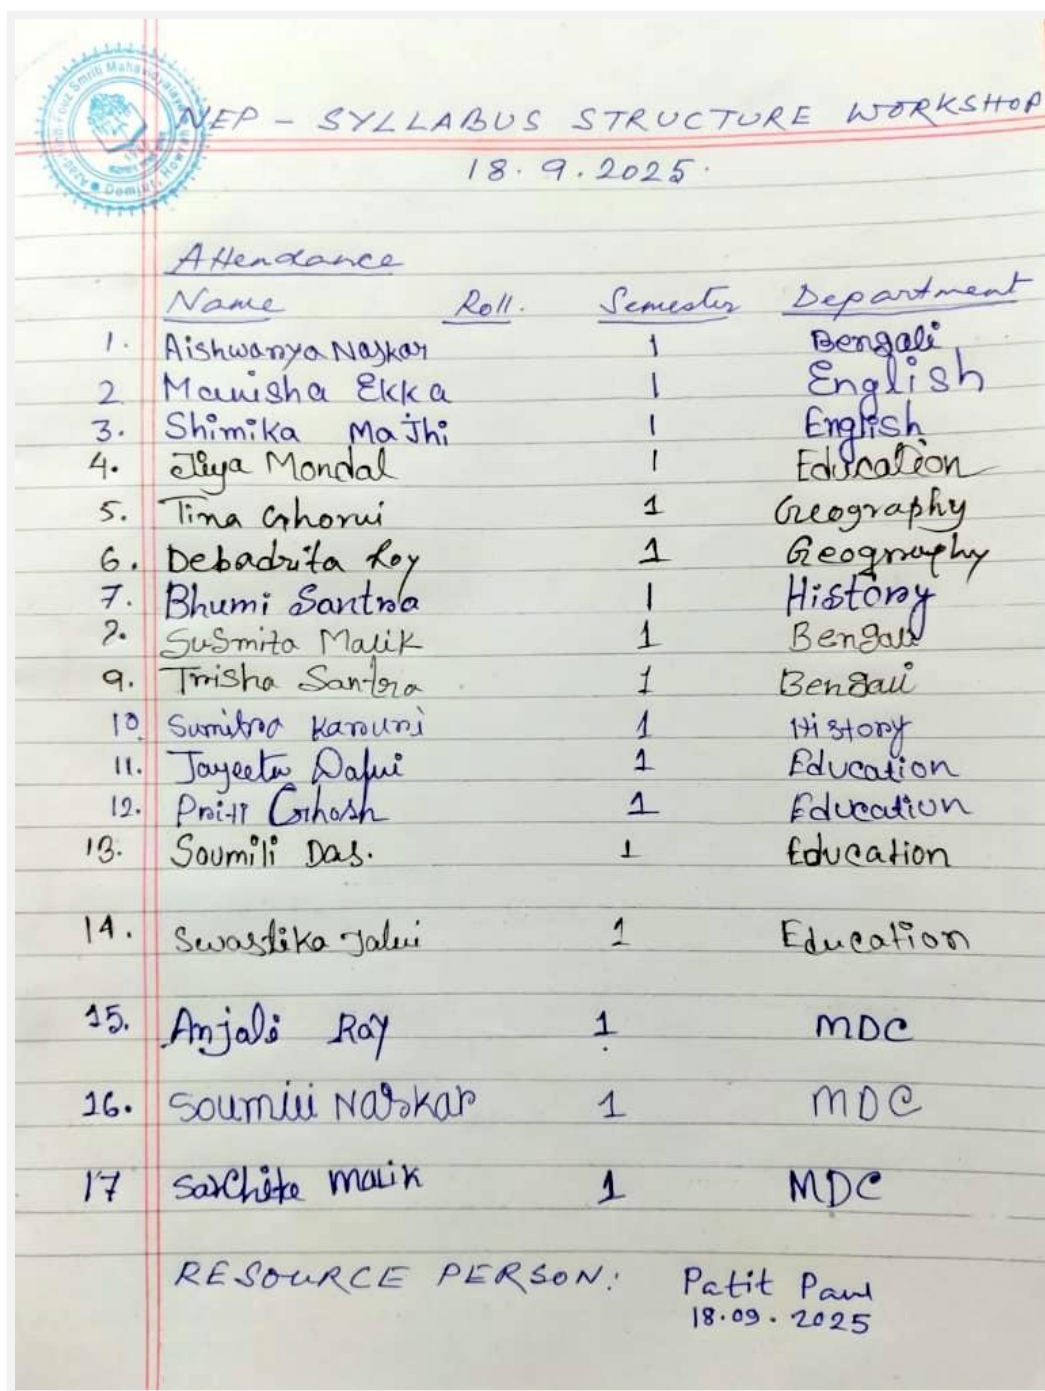 Azad Hind Fouz Smriti Mahavidyalaya
Domjur, Howrah
NEP - SYLLABUS STRUCTURE WORKSHOP
18.9.2025.
Attendance
Name Roll. Semester Department
1. Aishwarya Naskar 1 Bengali
2 Manisha Ekka 1 English
3. Shimika Majhi 1 English
4. Jiya Mondal 1 Education
5. Tina Ghorui 1 Geography
6. Debadrita Roy 1 Geography
7. Bhumi Santra 1 History
8. Susmita Malik 1 Bengali
9. Trisha Santra 1 Bengali
10. Sumitra Karuri 1 History
11. Jayeeta Dalui 1 Education
12. Priti Ghosh 1 Education
13. Soumili Das. 1 Education
14. Swastika Jalui 1 Education
15. Anjali Ray 1 MDC
16. Soumili Naskar 1 MDC
17 Malik 1 MDC
RESOURCE PERSON: Patit Paul
18.09.2025